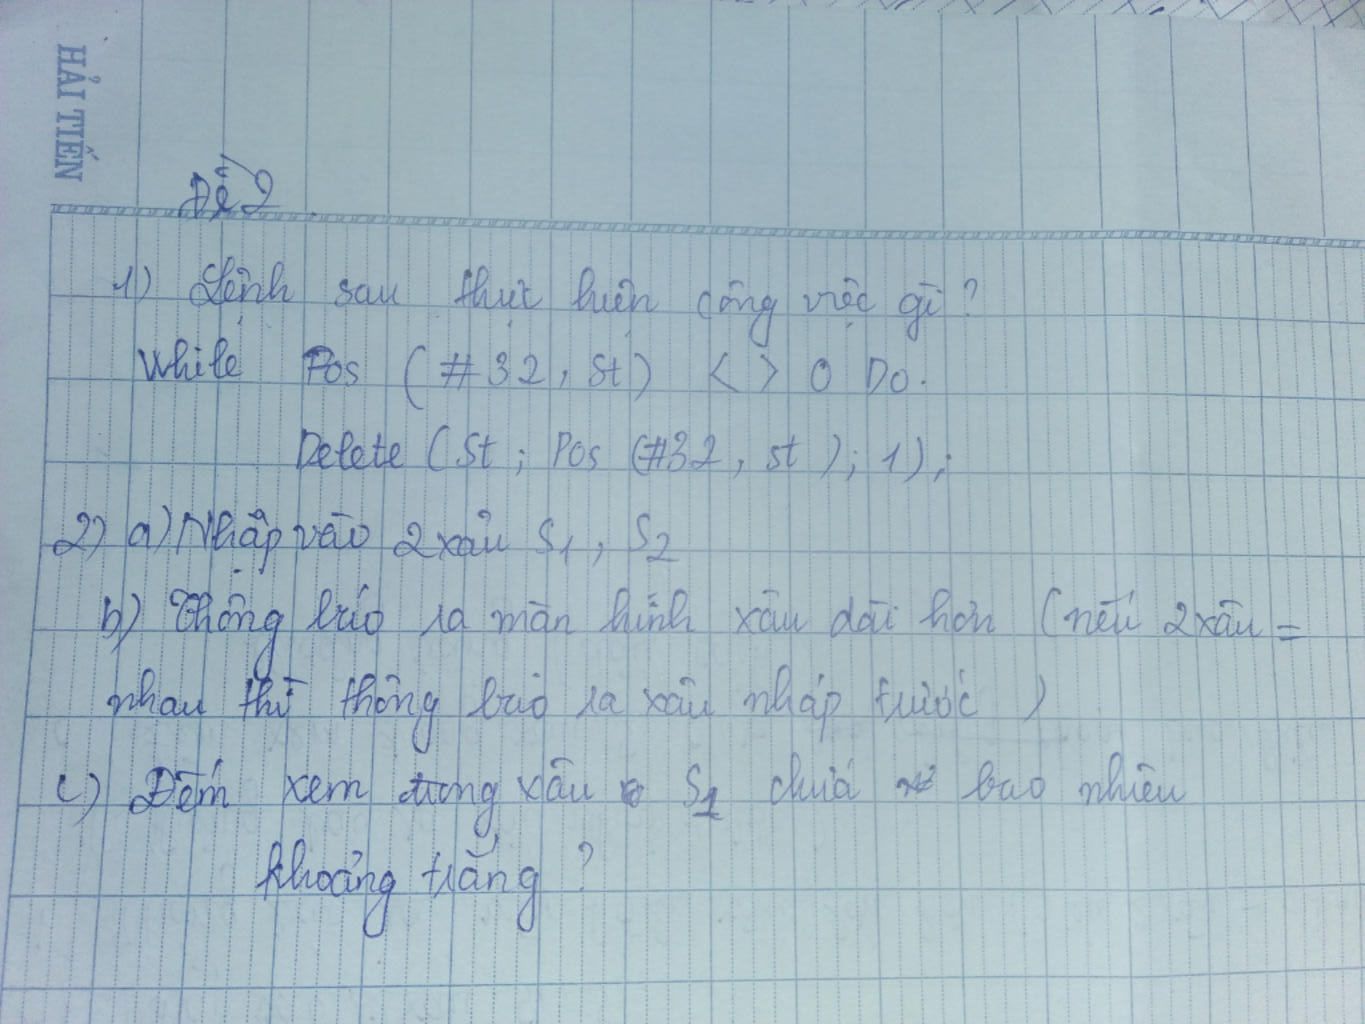 HẢI TIẾN
Đề 2
1) Lệnh sau thực hiện công việc gì?
While Pos (#32, St) <> 0 Do.
Delete (St; Pos (#32, st); 1);
2) a) Nhập vào 2 xâu S1, S2
b) Thông báo ra màn hình xâu dài hơn (nếu 2 xâu =
nhau thì thông báo ra xâu nhập trước)
c) Đếm xem trong xâu S1 chứa bao nhiêu
khoảng trắng?